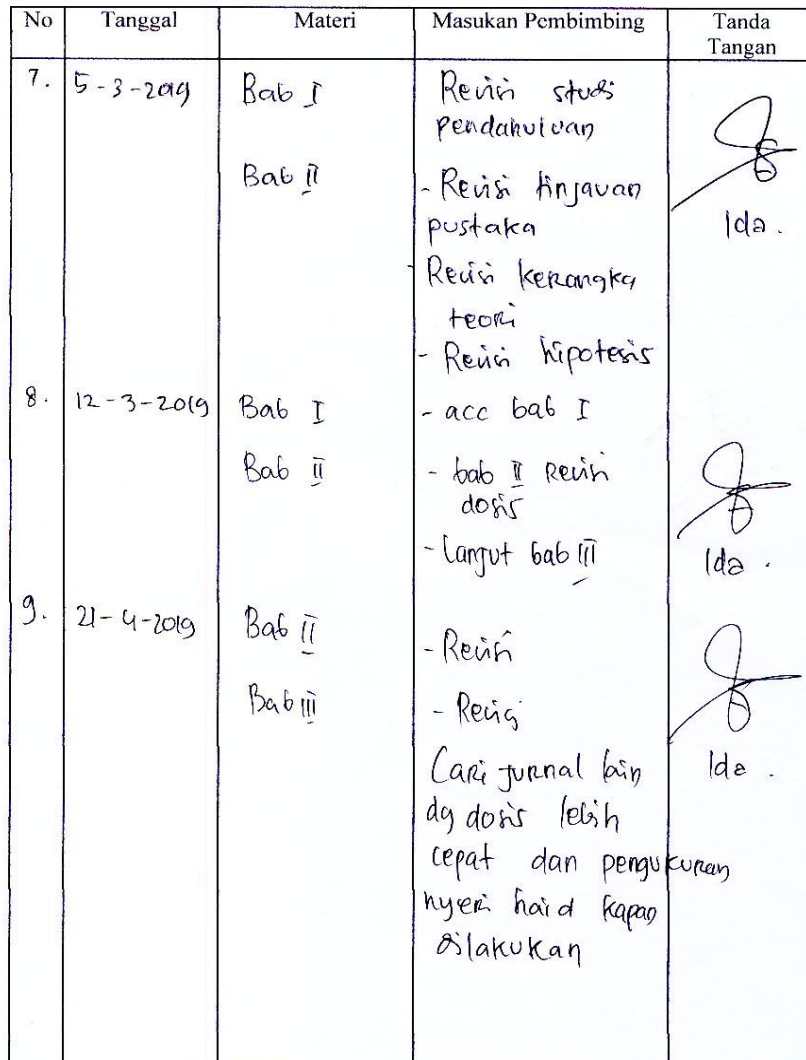 No Tanggal Materi Masukan Pembimbing Tanda Tangan
7. 5-3-2019 Bab I Revisi studi
pendahuluan
Bab II - Revisi tinjauan
pustaka Ida.
- Revisi kerangka
teori
- Revisi hipotesis
8. 12-3-2019 Bab I - acc bab I
Bab II - bab II Revisi
dosis
- Lanjut bab III Ida.
9. 21-4-2019 Bab II - Revisi
Bab III - Revisi
Cari jurnal lain Ida.
dg dosis lebih
cepat dan pengukuran
nyeri haid kapan
dilakukan